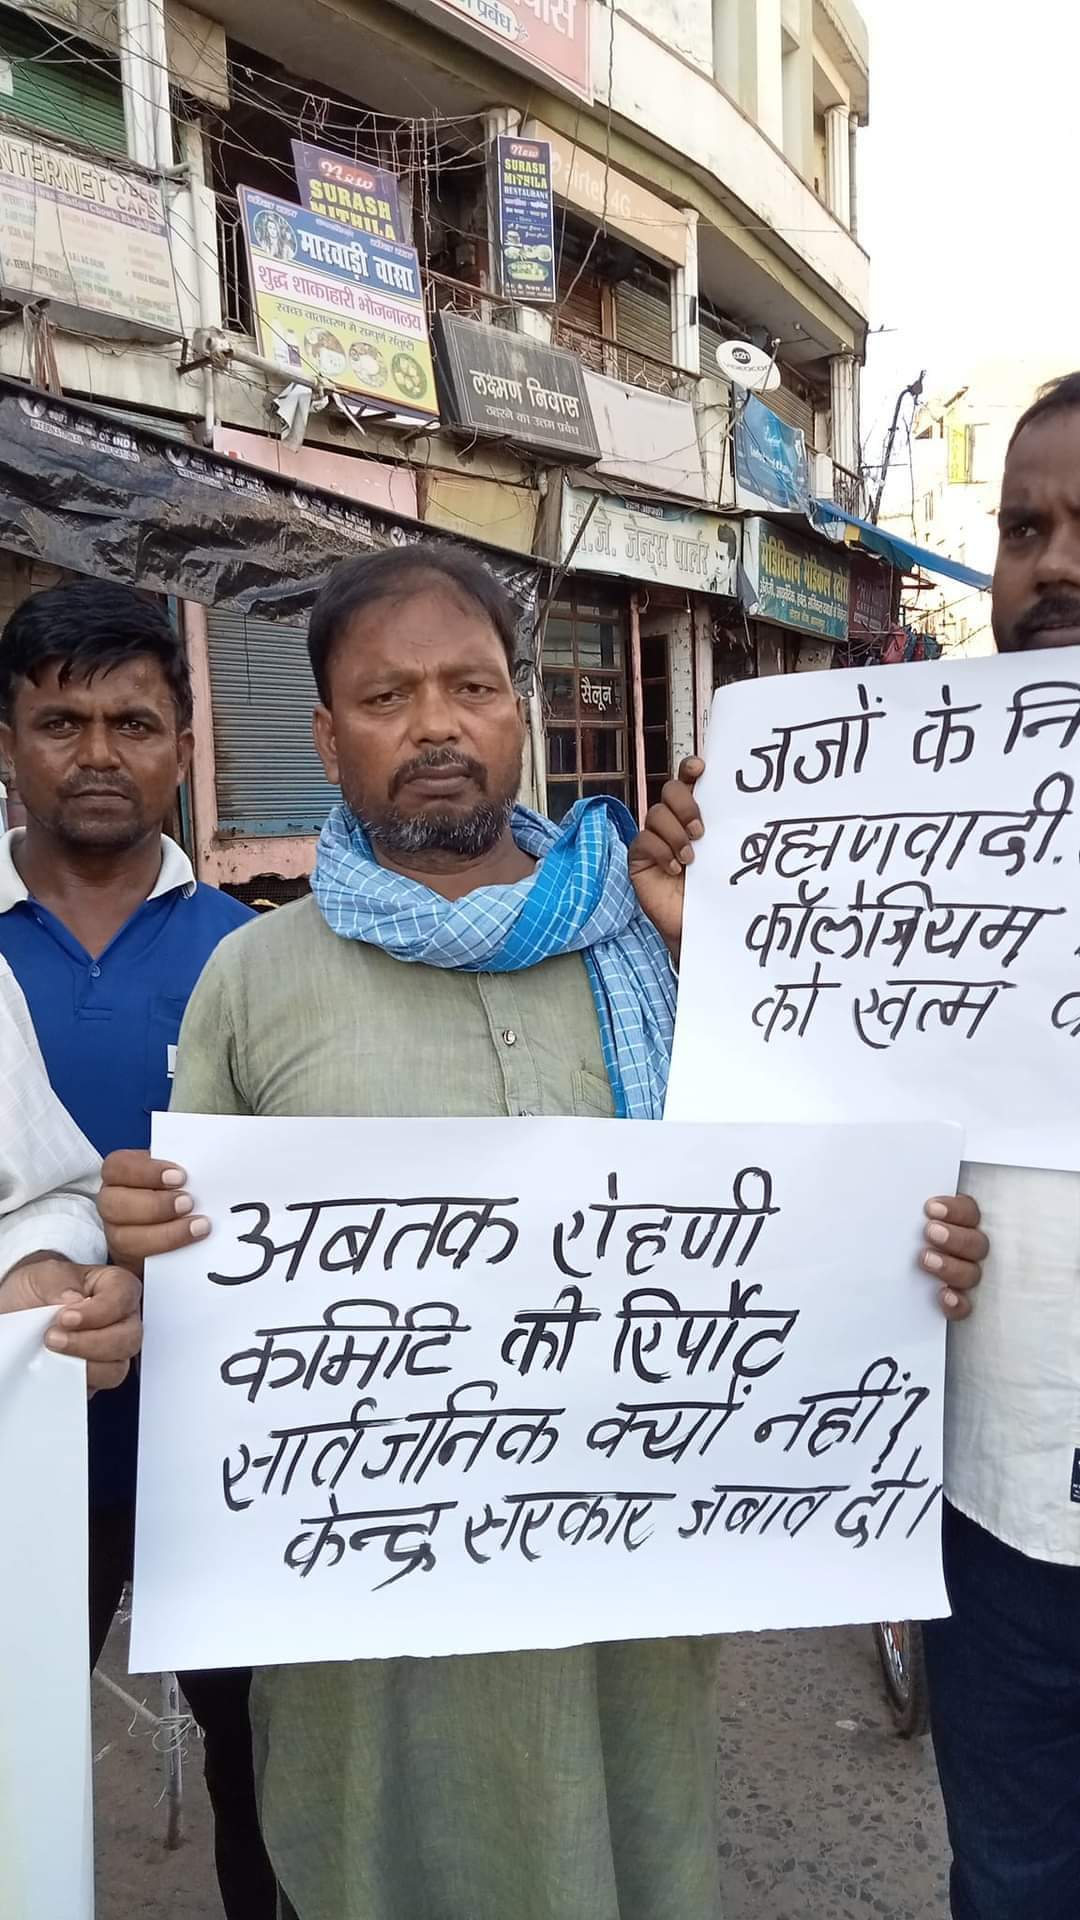 प्रबंध
INTERNET CYBER CAFE
Station Chowk, Bhagalpur
New
SURASH
MITHILA
New
SURASH
MITHILA
RESTAURANT
airtel 4G
मारवाड़ी वासा
शुद्ध शाकाहारी भोजनालय
स्वच्छ वातावरण में सम्पूर्ण संतुष्टी
लक्ष्मण निवास
ठहरने का उत्तम प्रबंध
d2h
VIDEOCON
जे. जेन्ट्स पार्लर
मेडिविजन मेडिकल स्टोर
सैलून
जजों के नि
ब्रह्मणवादी.
कॉलेजियम
को खत्म
अबतक रोहणी
कमिटि की रिर्पोट
सार्वजनिक क्यों नहीं?
केन्द्र सरकार जबाव दो।